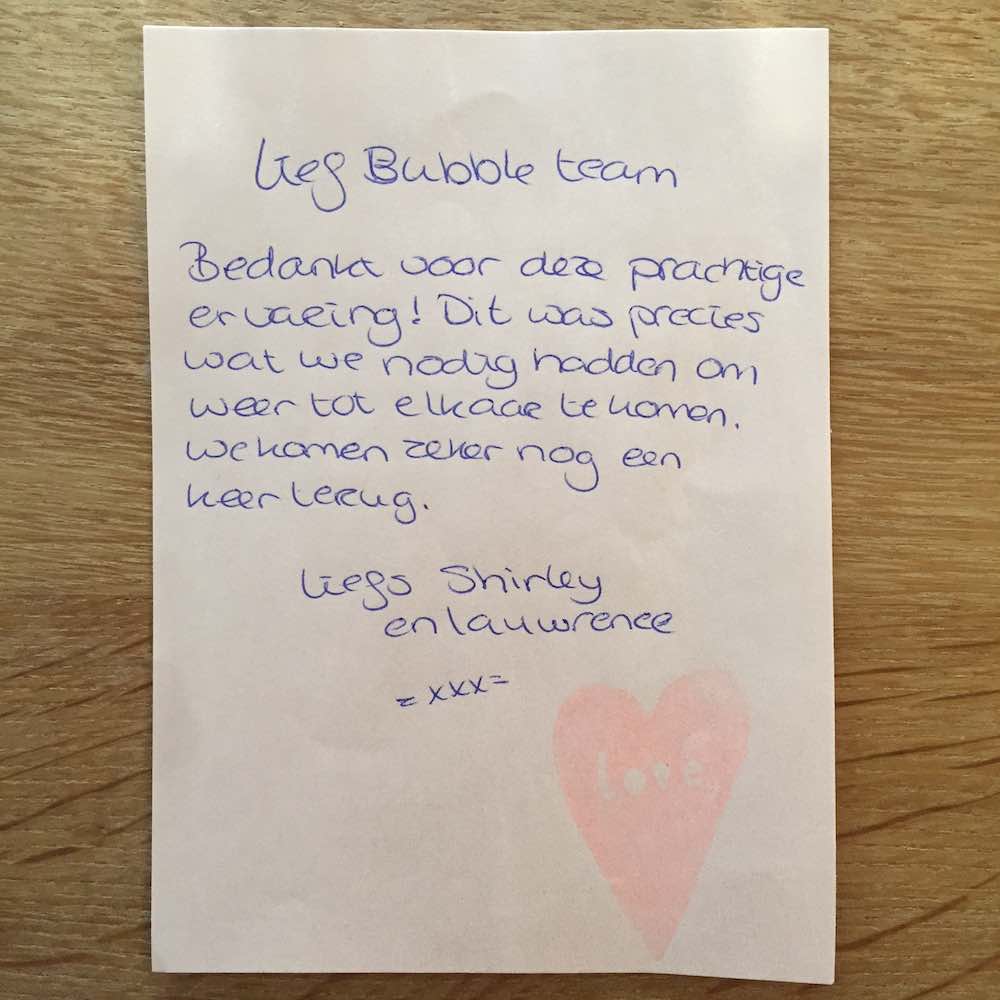 Lief Bubble team
Bedankt voor deze prachtige
ervaring! Dit was precies
wat we nodig hadden om
weer tot elkaar te komen.
We komen zeker nog een
keer terug.
Liefs Shirley
en Lauwrence
=xxx=
love